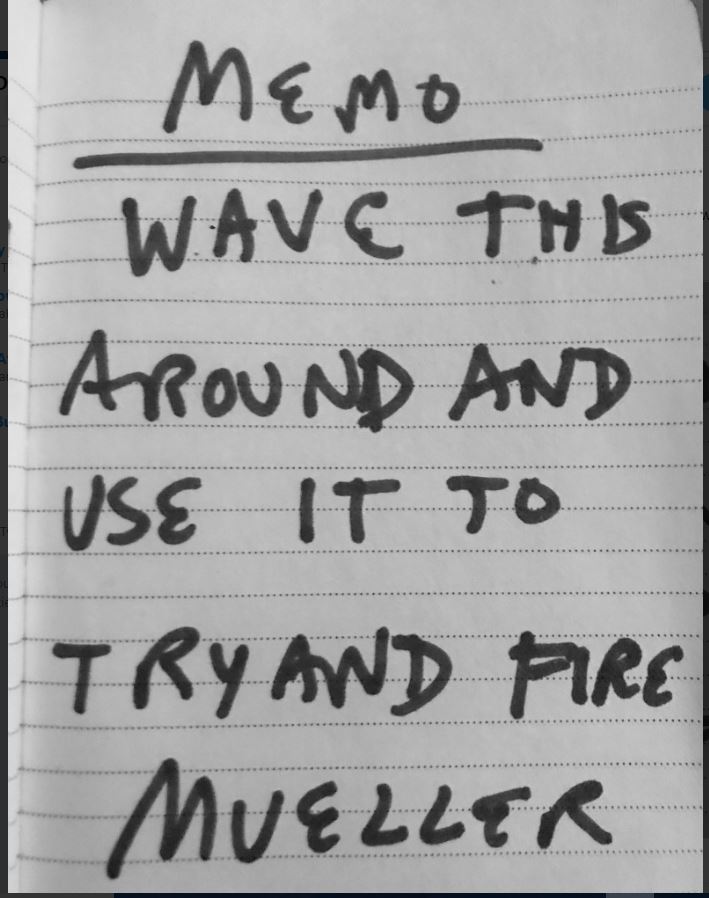 MEMO
WAVE THIS
AROUND AND
USE IT TO
TRY AND FIRE
MUELLER